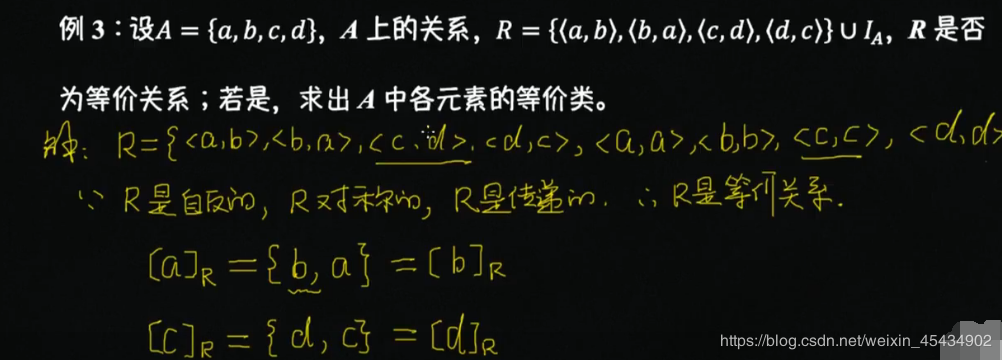 例 3：设A = {a, b, c, d}，A 上的关系，R = {⟨a, b⟩, ⟨b, a⟩, ⟨c, d⟩, ⟨d, c⟩} ∪ I_A，R 是否
为等价关系；若是，求出 A 中各元素的等价类。
解：R={<a,b>,<b,a>,<c,d>,<d,c>,<a,a>,<b,b>,<c,c>,<d,d>
∵ R是自反的，R对称的，R是传递的. ∴ R是等价关系.
[a]_R = {b, a} = [b]_R
[c]_R = {d, c} = [d]_R
https://blog.csdn.net/weixin_45434902